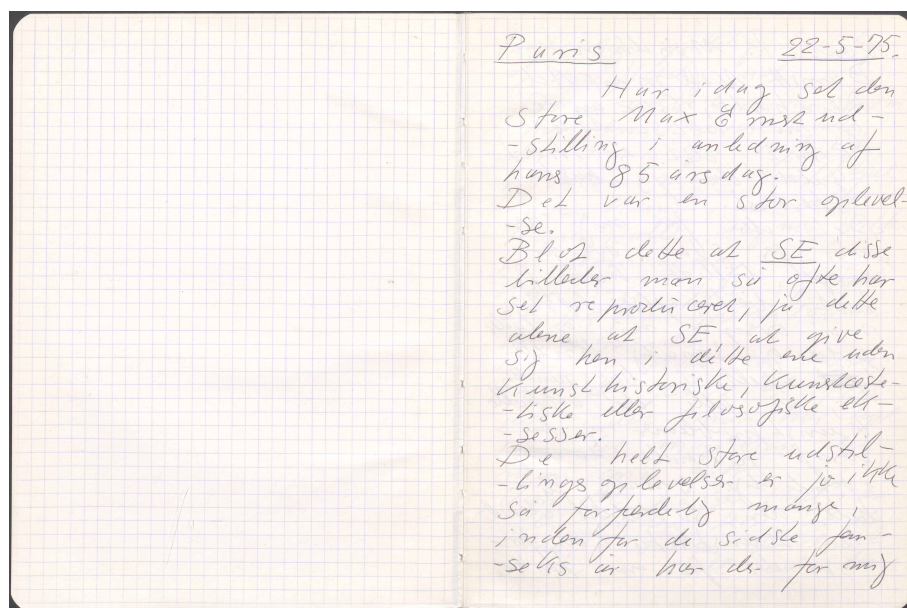 Paris 22-5-75.
Har idag set den
store Max Ernst ud-
-stilling i anledning af
hans 85 årsdag.
Det var en stor oplevel-
-se.
Blot dette at SE disse
billeder man så ofte har
set reproduceret, ja dette
alene at SE, at give
sig hen i dette ene uden
kunsthistoriske, kunstæste-
-tiske eller filosofiske ek-
-sesser.
De helt store udstil-
-lingsoplevelser er jo ikke
så forfærdelig mange,
inden for de sidste fem-
-seks år har der for mig